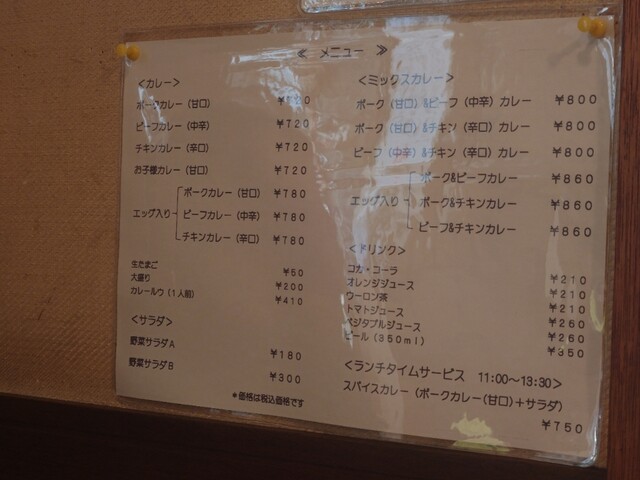 ≪ メニュー ≫
＜カレー＞
ポークカレー（甘口）
ビーフカレー（中辛） ￥720
チキンカレー（辛口） ￥720
お子様カレー（甘口） ￥720
エッグ入り
ポークカレー（甘口） ￥780
ビーフカレー（中辛） ￥780
チキンカレー（辛口） ￥780
生たまご ￥60
大盛り ￥200
カレールウ（1人前） ￥410
＜サラダ＞
野菜サラダA ￥180
野菜サラダB ￥300
*価格は税込価格です
＜ミックスカレー＞
ポーク（甘口）&ビーフ（中辛）カレー ￥800
ポーク（甘口）&チキン（辛口）カレー ￥800
ビーフ（中辛）&チキン（辛口）カレー ￥800
エッグ入り
ポーク&ビーフカレー ￥860
ポーク&チキンカレー ￥860
ビーフ&チキンカレー ￥860
＜ドリンク＞
コカ・コーラ ￥210
オレンジジュース ￥210
ウーロン茶 ￥210
トマトジュース ￥260
ベジタブルジュース ￥260
ビール（350ml） ￥350
＜ランチタイムサービス 11:00～13:30＞
スパイスカレー（ポークカレー(甘口)＋サラダ）
￥750